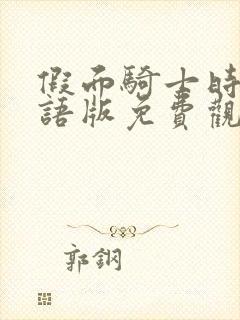 假面騎士時
語版免費觀
郭鋼